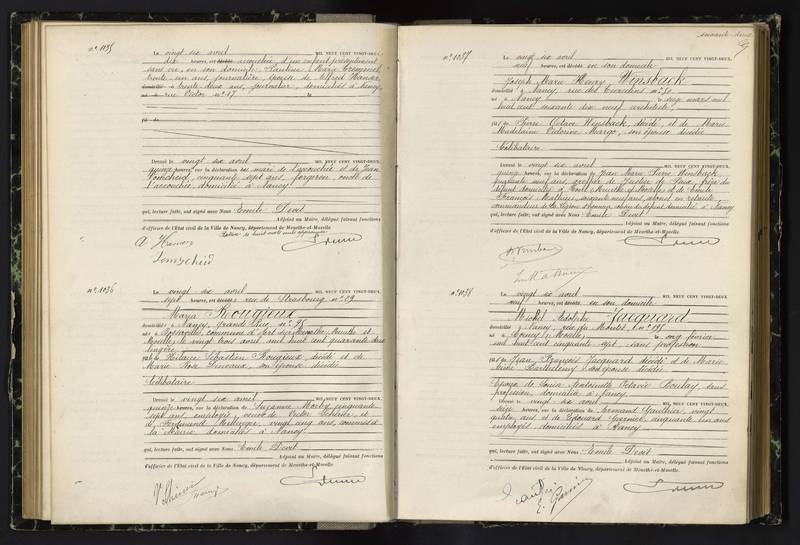 nº 1035
Le vingt six avril MIL NEUF CENT VINGT-DEUX,
dix heures, est accouchée, d'un enfant présentement
sans vie, en son domicile, Pauline Marie
trente un ans, journalière, épouse de Alfred
trente deux ans, journalier, domiciliés à Nancy,
rue Victor nº 17
fils de
Dressé le vingt six avril MIL NEUF CENT VINGT-DEUX,
quinze heures, sur la déclaration du mari de l'accouchée et de Jean
cinquante sept ans, forgeron, oncle de
l'accouchée, domicilié à Nancy
qui, lecture faite, ont signé avec Nous Emile Devit
Adjoint au Maire, délégué faisant fonctions
d'officier de l'Etat civil de la Ville de Nancy, département de Meurthe-et-Moselle.
nº 1036
Le vingt six avril MIL NEUF CENT VINGT-DEUX,
sept heures, est décédée rue de Strasbourg nº 19
Maria Rougieux
domiciliée à Nancy, Grande Rue nº 98
Moselle, le vingt trois avril mil huit cent quarante
lingère
fille de Hilaire Sébastien Rougieux décédé et de
Marie Rose son épouse décédée
Célibataire
Dressé le vingt six avril MIL NEUF CENT VINGT-DEUX,
quinze heures, sur la déclaration de Suzanne cinquante
sept ans, employée, veuve de Victor et
de Ferdinand vingt cinq ans, commis à
la Mairie domiciliés à Nancy
qui, lecture faite, ont signé avec Nous Emile Devit
Adjoint au Maire, délégué faisant fonctions
d'officier de l'Etat civil de la Ville de Nancy, département de Meurthe-et-Moselle.
nº 1037
Le vingt six avril MIL NEUF CENT VINGT-DEUX,
neuf heures, est décédé en son domicile
Joseph Marie Henry Winsback
domicilié à Nancy, rue des
à Nancy le onze mars mil
huit cent soixante dix neuf, architecte
fils de Pierre Octave Winsback, décédé, et de Marie
Madelaine Victorine Margo, son épouse décédée
Célibataire
Dressé le vingt six avril MIL NEUF CENT VINGT-DEUX,
quinze heures, sur la déclaration de Jean Marie Pierre Winsback
cinquante ans, greffier de Justice de Paix, frère du
défunt domicilié à Toul, Meurthe et Moselle, et de Emile
François Mathieu, soixante neuf ans, en retraite
commandeur de la Légion d'honneur, du défunt domicilié à Nancy
qui, lecture faite, ont signé avec Nous Emile Devit
Adjoint au Maire, délégué faisant fonctions
d'officier de l'Etat civil de la Ville de Nancy, département de Meurthe-et-Moselle.
nº 1038
Le vingt six avril MIL NEUF CENT VINGT-DEUX,
neuf heures, est décédé en son domicile
Michel Adolphe Jacquard
domicilié à Nancy, rue du Montet, nº 198
(Moselle) le onze février
mil huit cent cinquante sept, sans profession
fils de Jean François Jacquard décédé et de Marie
Barthélemy son épouse décédée
Epoux de Louise Antoinette Octavie Boulay sans
profession, domiciliée à Nancy
Dressé le vingt six avril MIL NEUF CENT VINGT-DEUX,
seize heures, sur la déclaration de Armand Gauthier, vingt
quatre ans et de Edouard cinquante un ans
employés domiciliés à Nancy
qui, lecture faite, ont signé avec Nous Emile Devit
Adjoint au Maire, délégué faisant fonctions
d'officier de l'Etat civil de la Ville de Nancy, département de Meurthe-et-Moselle.